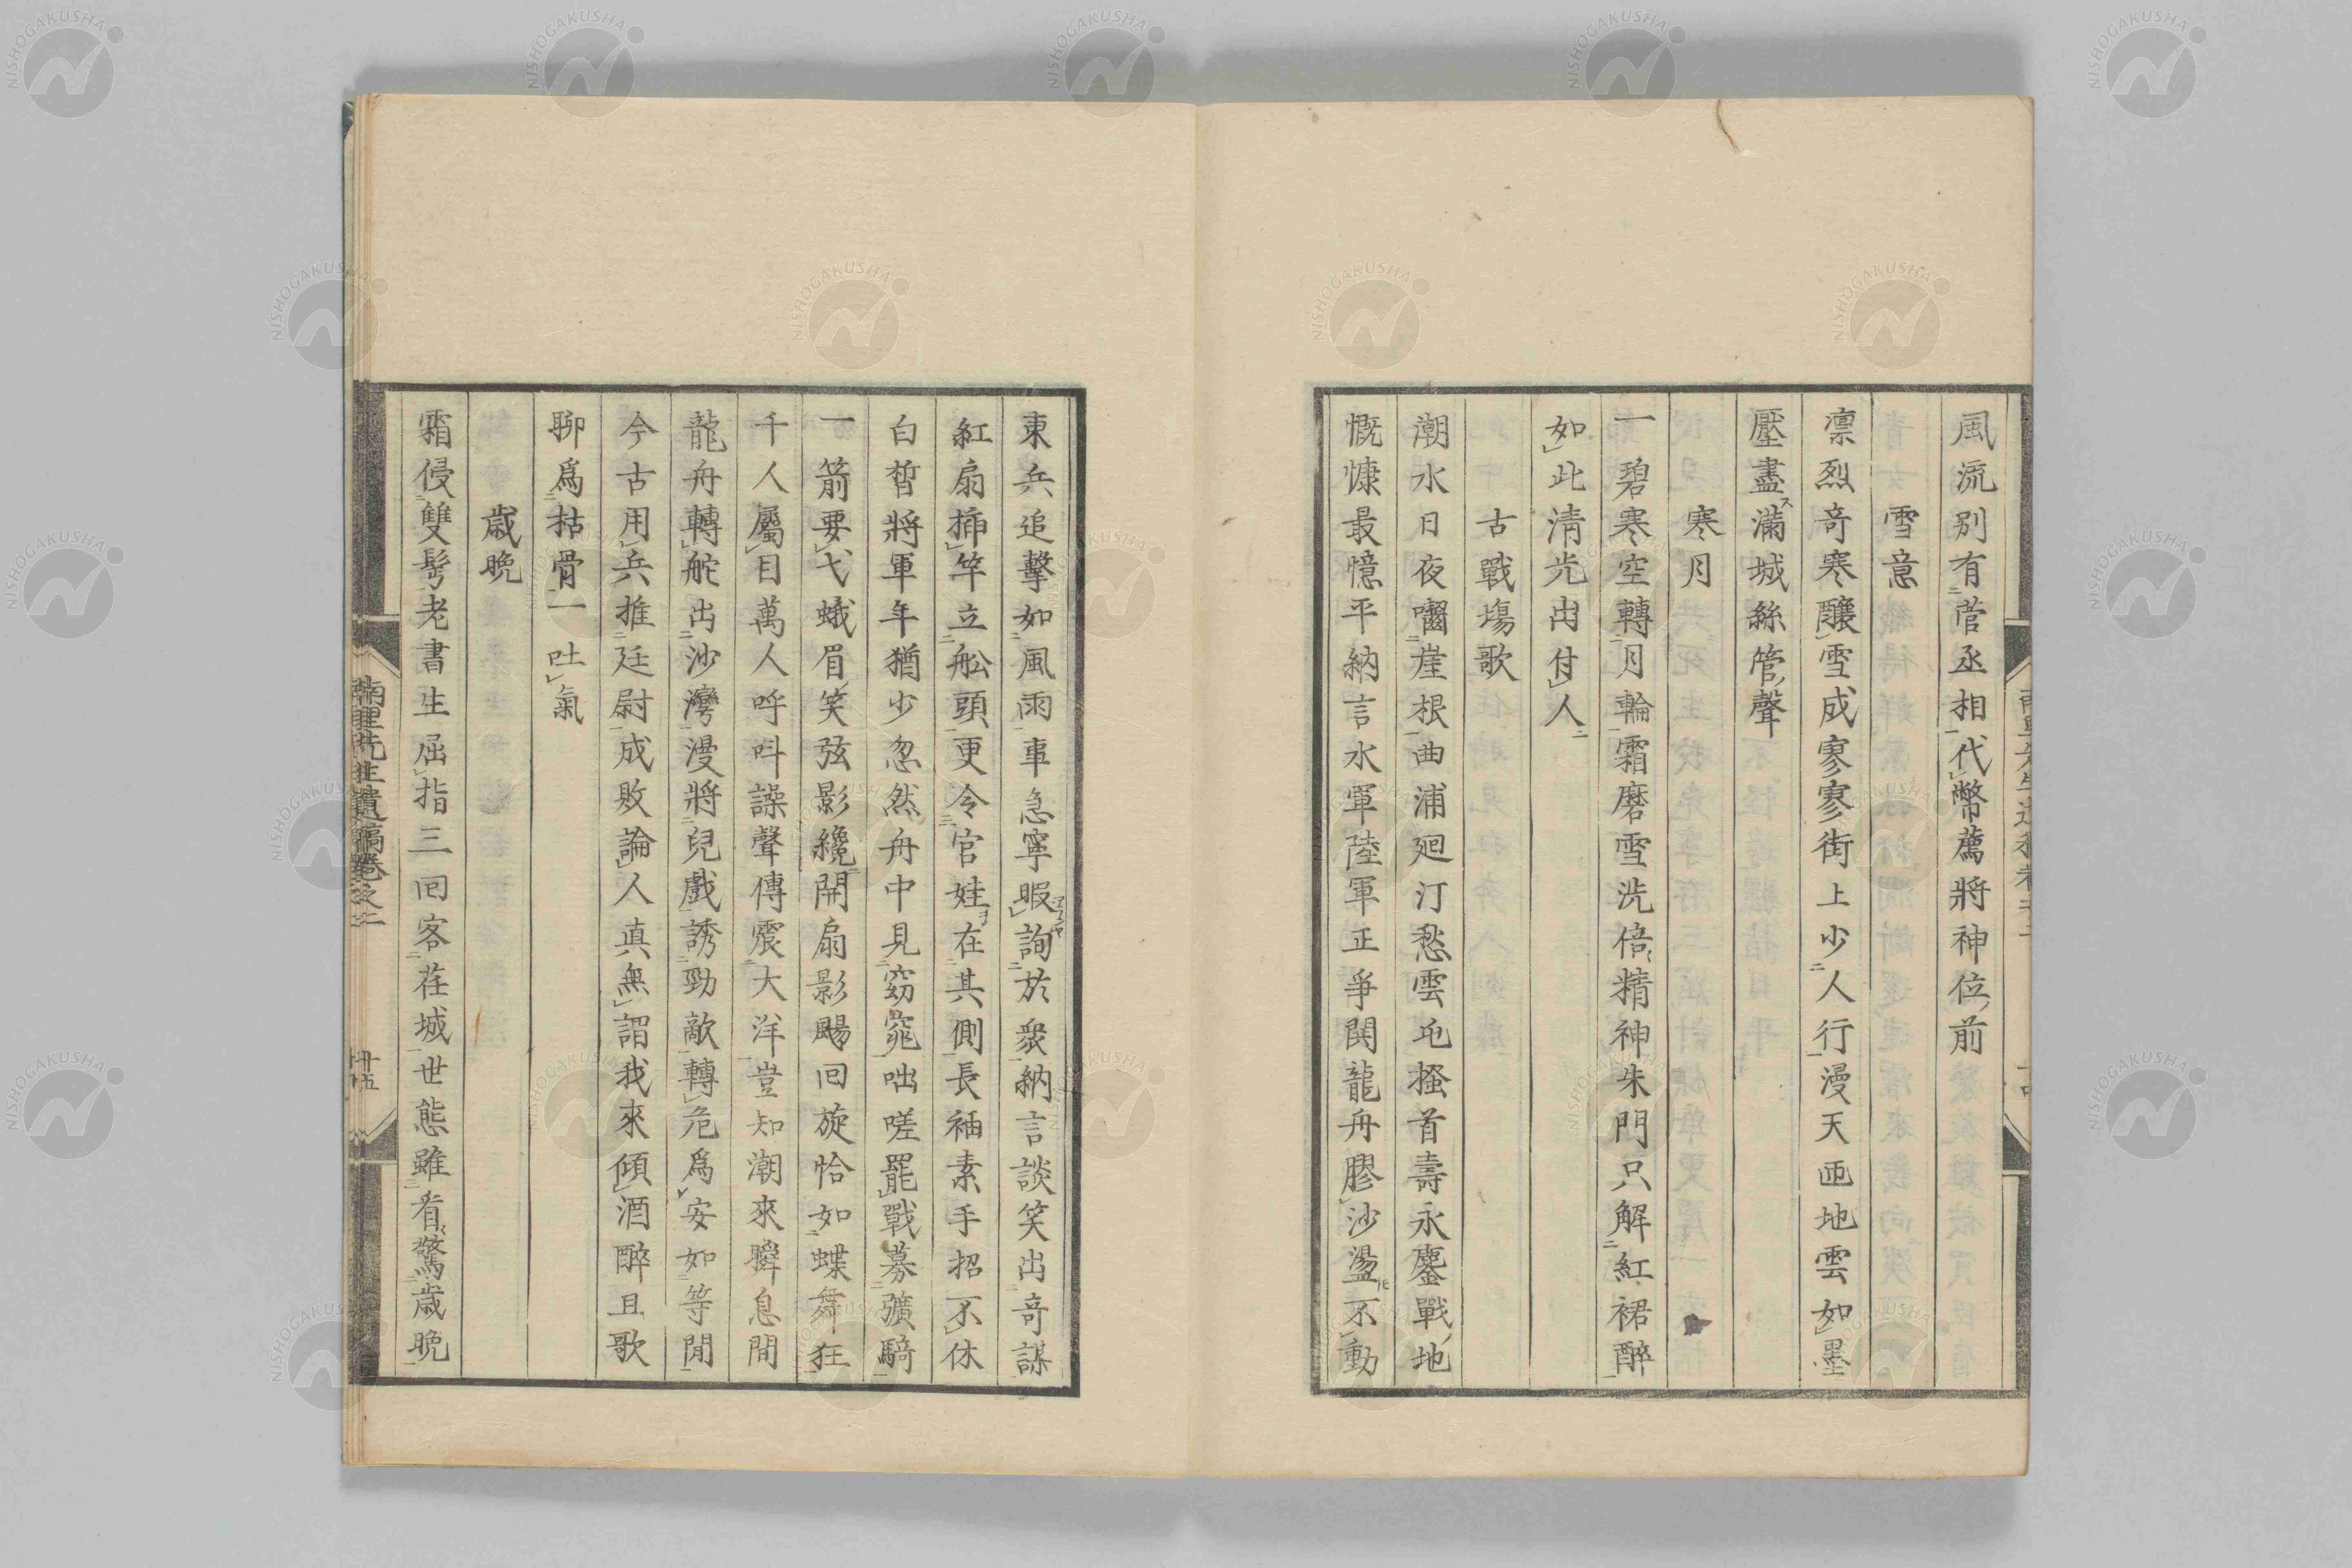 風流別有菅丞相代幣薦將神位前
雪意
凛烈奇寒釀雪成寥寥街上少人行漫天匝地雲如墨
壓盡滿城絲管聲
寒月
一碧寒空轉月輪霜磨雪洗倍精神朱門只解紅裙醉
如此清光出付人
古戰塲歌
潮水日夜囓崖根曲浦廻汀愁雲屯搔首壽永鏖戰地
慨慷最憶平納言水軍陸軍正爭鬨龍舟膠沙盪不動
東兵追擊如風雨事急寧暇詢於衆納言談笑出奇謀
紅扇揷竿立舩頭更令官娃在其側長袖素手招不休
白皙將軍年猶少忽然舟中見窈窕咄嗟罷戰募彍騎
一箭要弋蛾眉笑弦影纔開扇影颺回旋恰如蝶舞狂
千人屬目萬人呼叫譟聲傳震大洋豈知潮來瞬息間
龍舟轉舵出沙灣漫將兒戲誘勁敵轉危爲安如等閒
今古用兵推廷尉成敗論人真無謂我來傾酒醉且歌
聊爲枯骨一吐氣
歳晩
霜侵雙髩老書生屈指三回客荏城世態雖看驚歳晩
南里先生遺稿卷之二
十五
NISHOGAKUSHA